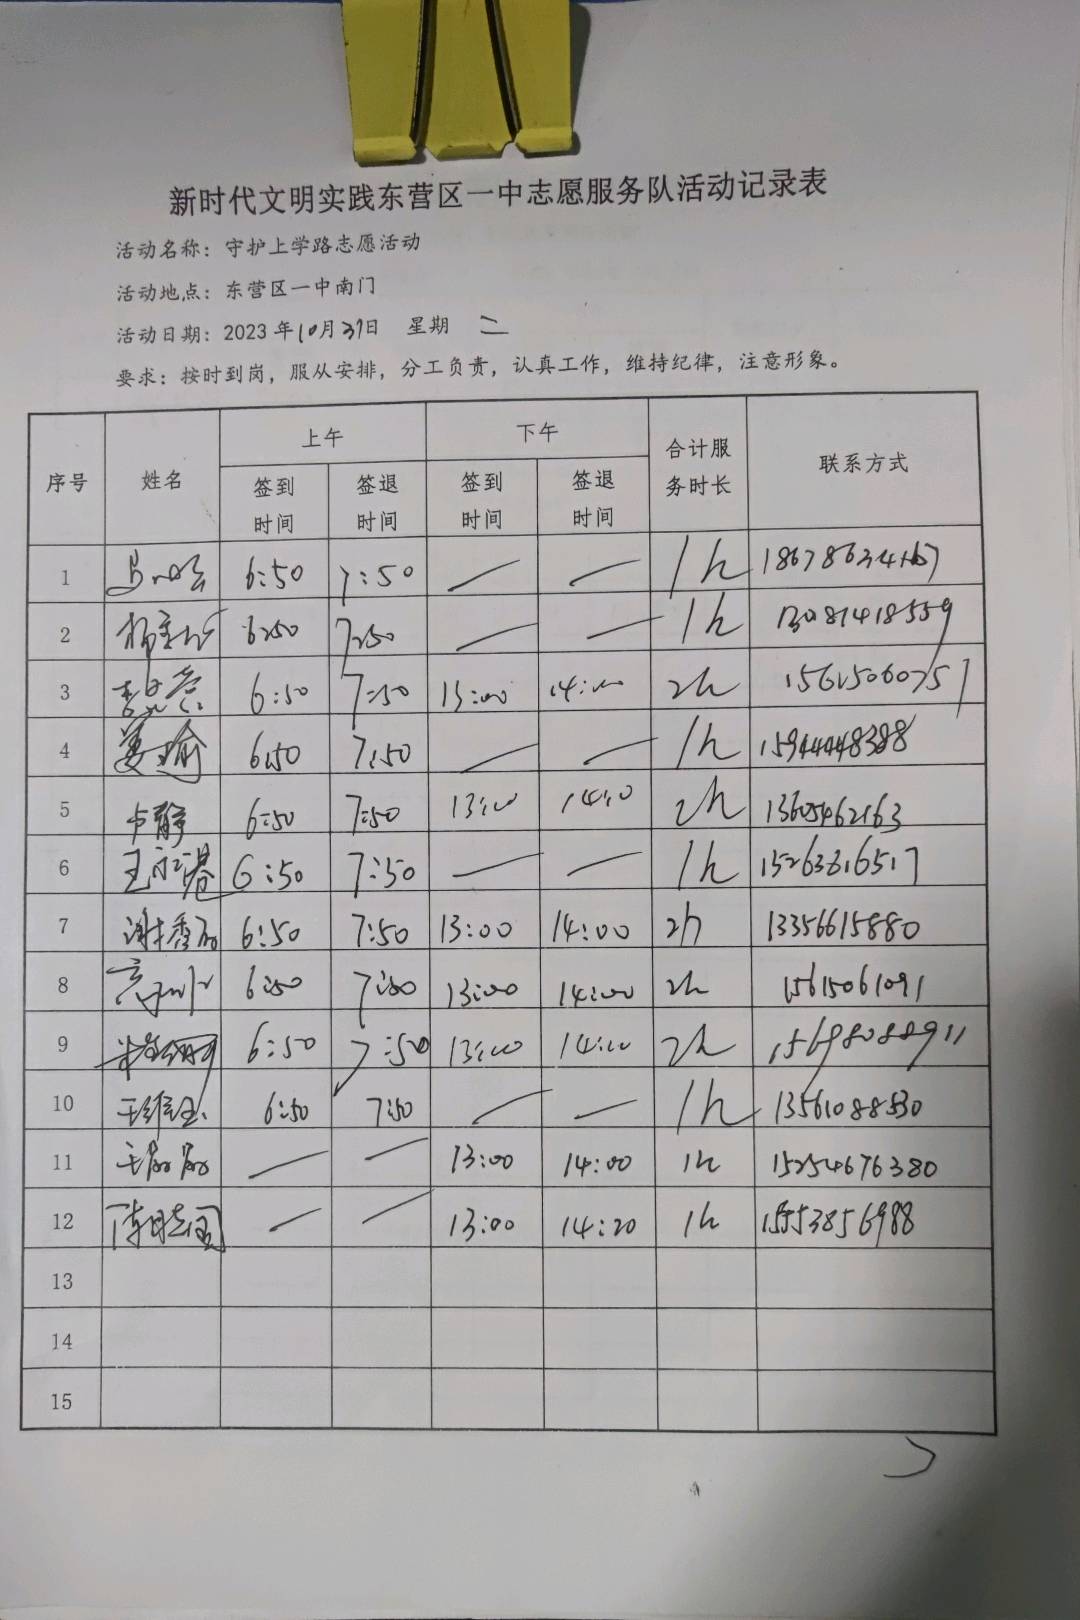 新时代文明实践东营区一中志愿服务队活动记录表
活动名称：守护上学路志愿活动
活动地点：东营区一中南门
活动日期：2023年10月31日 星期 二
要求：按时到岗，服从安排，分工负责，认真工作，维持纪律，注意形象。
序号 姓名 上午 下午 合计服务时长 联系方式
签到时间 签退时间 签到时间 签退时间
1 6:50 7:50 — — 1h
2 6:50 7:50 — — 1h 13081418559
3 6:50 7:50 13:00 14:00 2h 15615060757
4 姜瑜 6:50 7:50 — — 1h 15944448388
5 卢静 6:50 7:50 13:00 14:00 2h 13605462163
6 6:50 7:50 — — 1h 15263816517
7 谢秀丽 6:50 7:50 13:00 14:00 2h 13356615880
8 6:50 7:50 13:00 14:00 2h 15615061091
9 6:50 7:50 13:00 14:00 2h 15698088911
10 6:50 7:50 — — 1h 13561088530
11 王丽丽 — — 13:00 14:00 1h 15254676380
12 — — 13:00 14:20 1h 15553856988
13
14
15